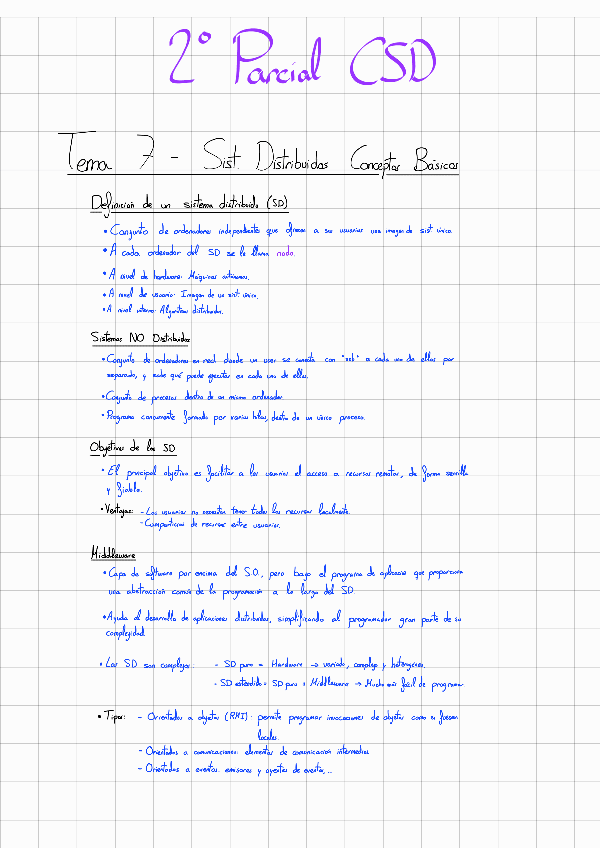 2º Parcial CSD
Tema 7 - Sist. Distribuidos Conceptos Básicos
Definición de un sistema distribuido (SD)
• Conjunto de ordenadores independientes que ofrecen a sus usuarios una imagen de sist. único.
• A cada ordenador del SD se le llama nodo.
• A nivel de hardware: Máquinas autónomas.
• A nivel de usuario: Imagen de un sist. único.
• A nivel interno: Algoritmos distribuidos.
Sistemas NO Distribuidos
• Conjunto de ordenadores en red donde un user se conecta con "ssh" a cada uno de ellos por
separado, y sabe qué puede ejecutar en cada uno de ellos.
• Conjunto de procesos dentro de un mismo ordenador.
• Programa concurrente formado por varios hilos, dentro de un único proceso.
Objetivos de los SD
• El principal objetivo es facilitar a los usuarios el acceso a recursos remotos, de forma sencilla
y fiable.
• Ventajas: - Los usuarios no necesitan tener todos los recursos localmente.
- Compartición de recursos entre usuarios.
Middleware
• Capa de software por encima del S.O., pero bajo el programa de aplicación que proporciona
una abstracción común de la programación a lo largo del SD
• Ayuda al desarrollo de aplicaciones distribuidas, simplificando al programador gran parte de su
complejidad.
• Los SD son complejos: - SD puro = Hardware → variado, complejo y heterogéneo.
- SD extendido = SD puro + Middleware → Mucho más fácil de programar
• Tipos: - Orientados a objetos (RMI): permite programar invocaciones de objetos como si fuesen
locales.
- Orientados a comunicaciones: elementos de comunicación intermedios
- Orientados a eventos: emisores y oyentes de eventos,...